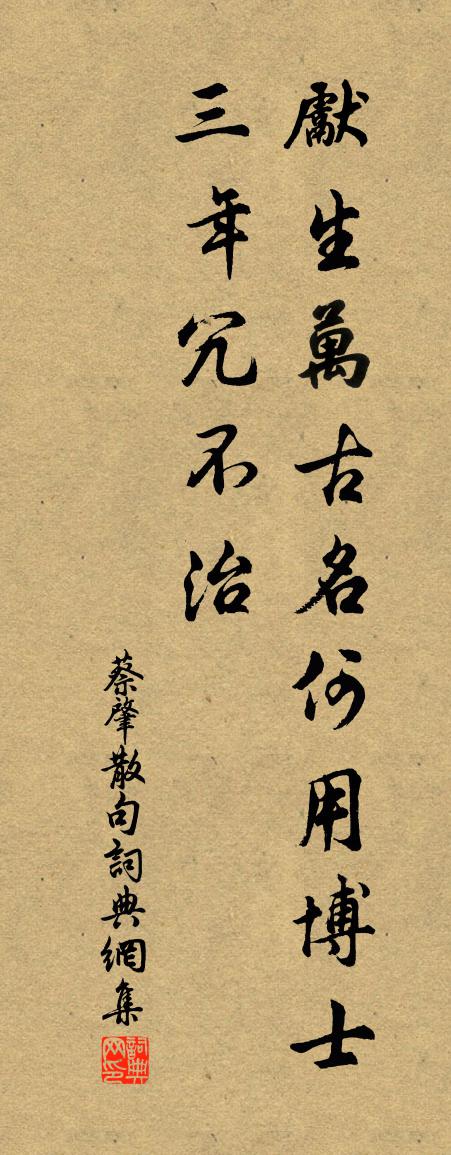 獻生萬古名何用博士
三年冗不治
蔡肇散句詞典網集
詞典网印